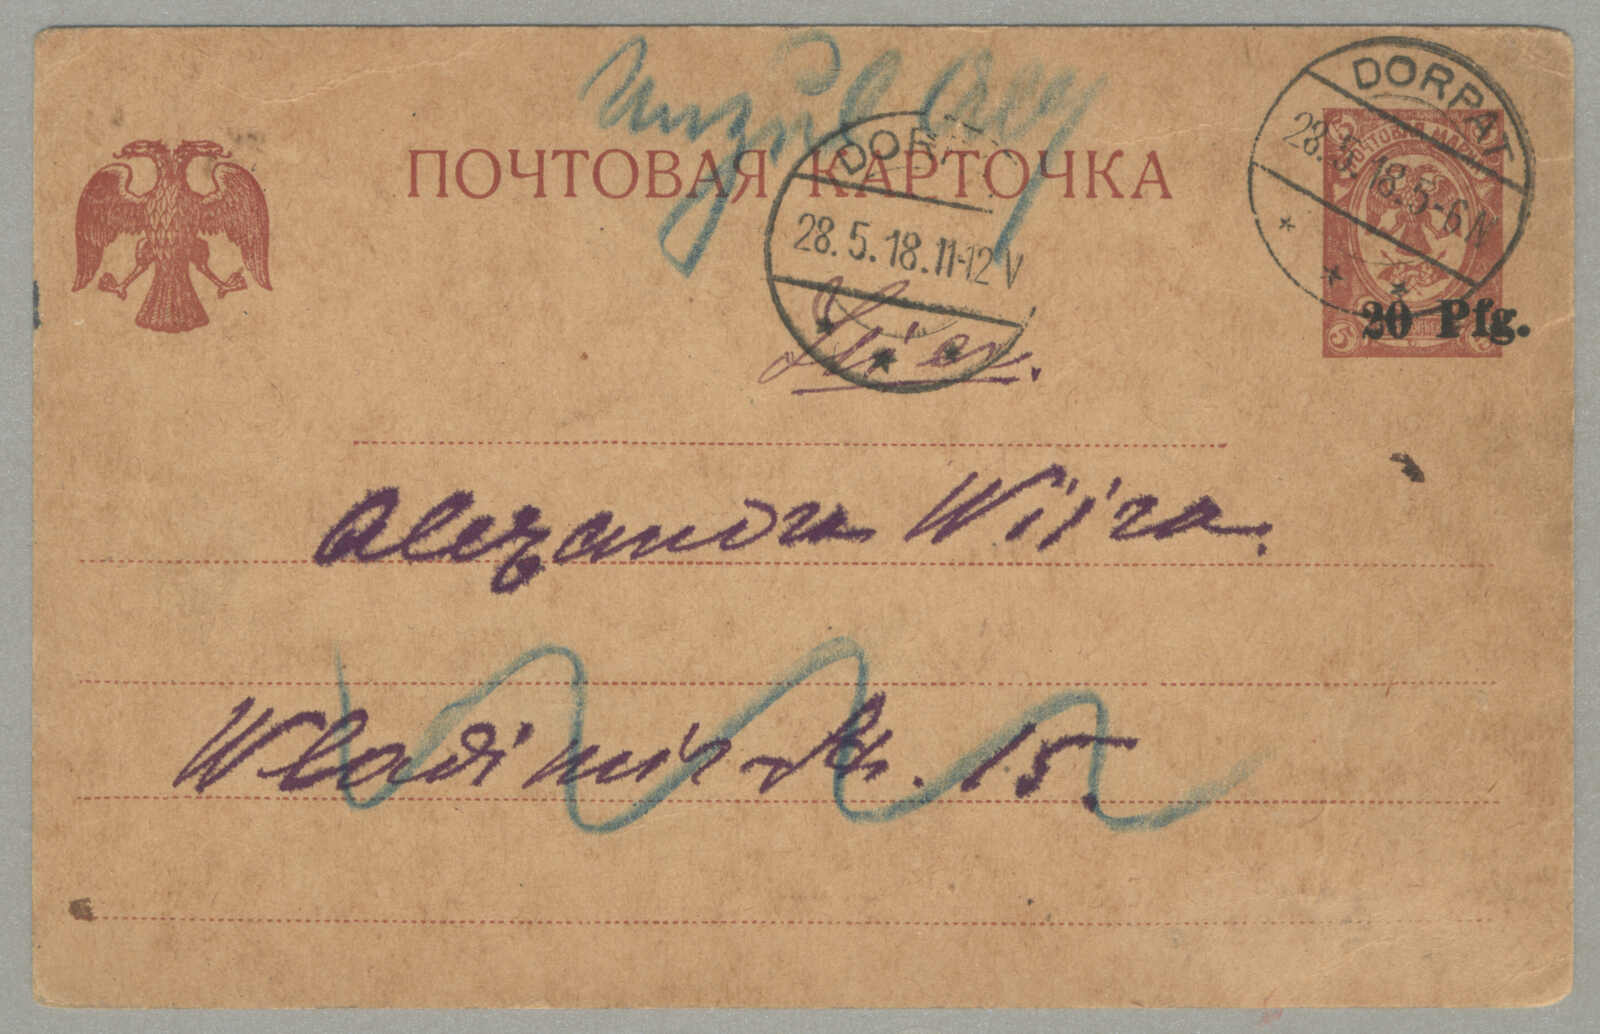 ПОЧТОВАЯ КАРТОЧКА
DORPAT
28.5.18.5-6N
ПОЧТОВАЯ МАРКА
5
20 Pfg.
DORPAT
28.5.18.11-12V
Hier.
Alexandra Wiira.
Wladimir-Str. 15.